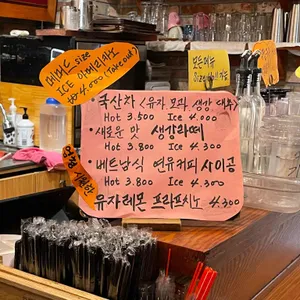 대따 C size
ICE 아메리카노
4.000 (Take out)
모든메뉴
• 국산차 (유자 모과 생강 대추)
Hot 3.500 Ice 4.000
• 새로운 맛 생강라떼
Hot 3.800 Ice 4.300
• 베트남식 연유커피 사이공
Hot 3.800 Ice 4.300
유자레몬 프라프치노 4.300